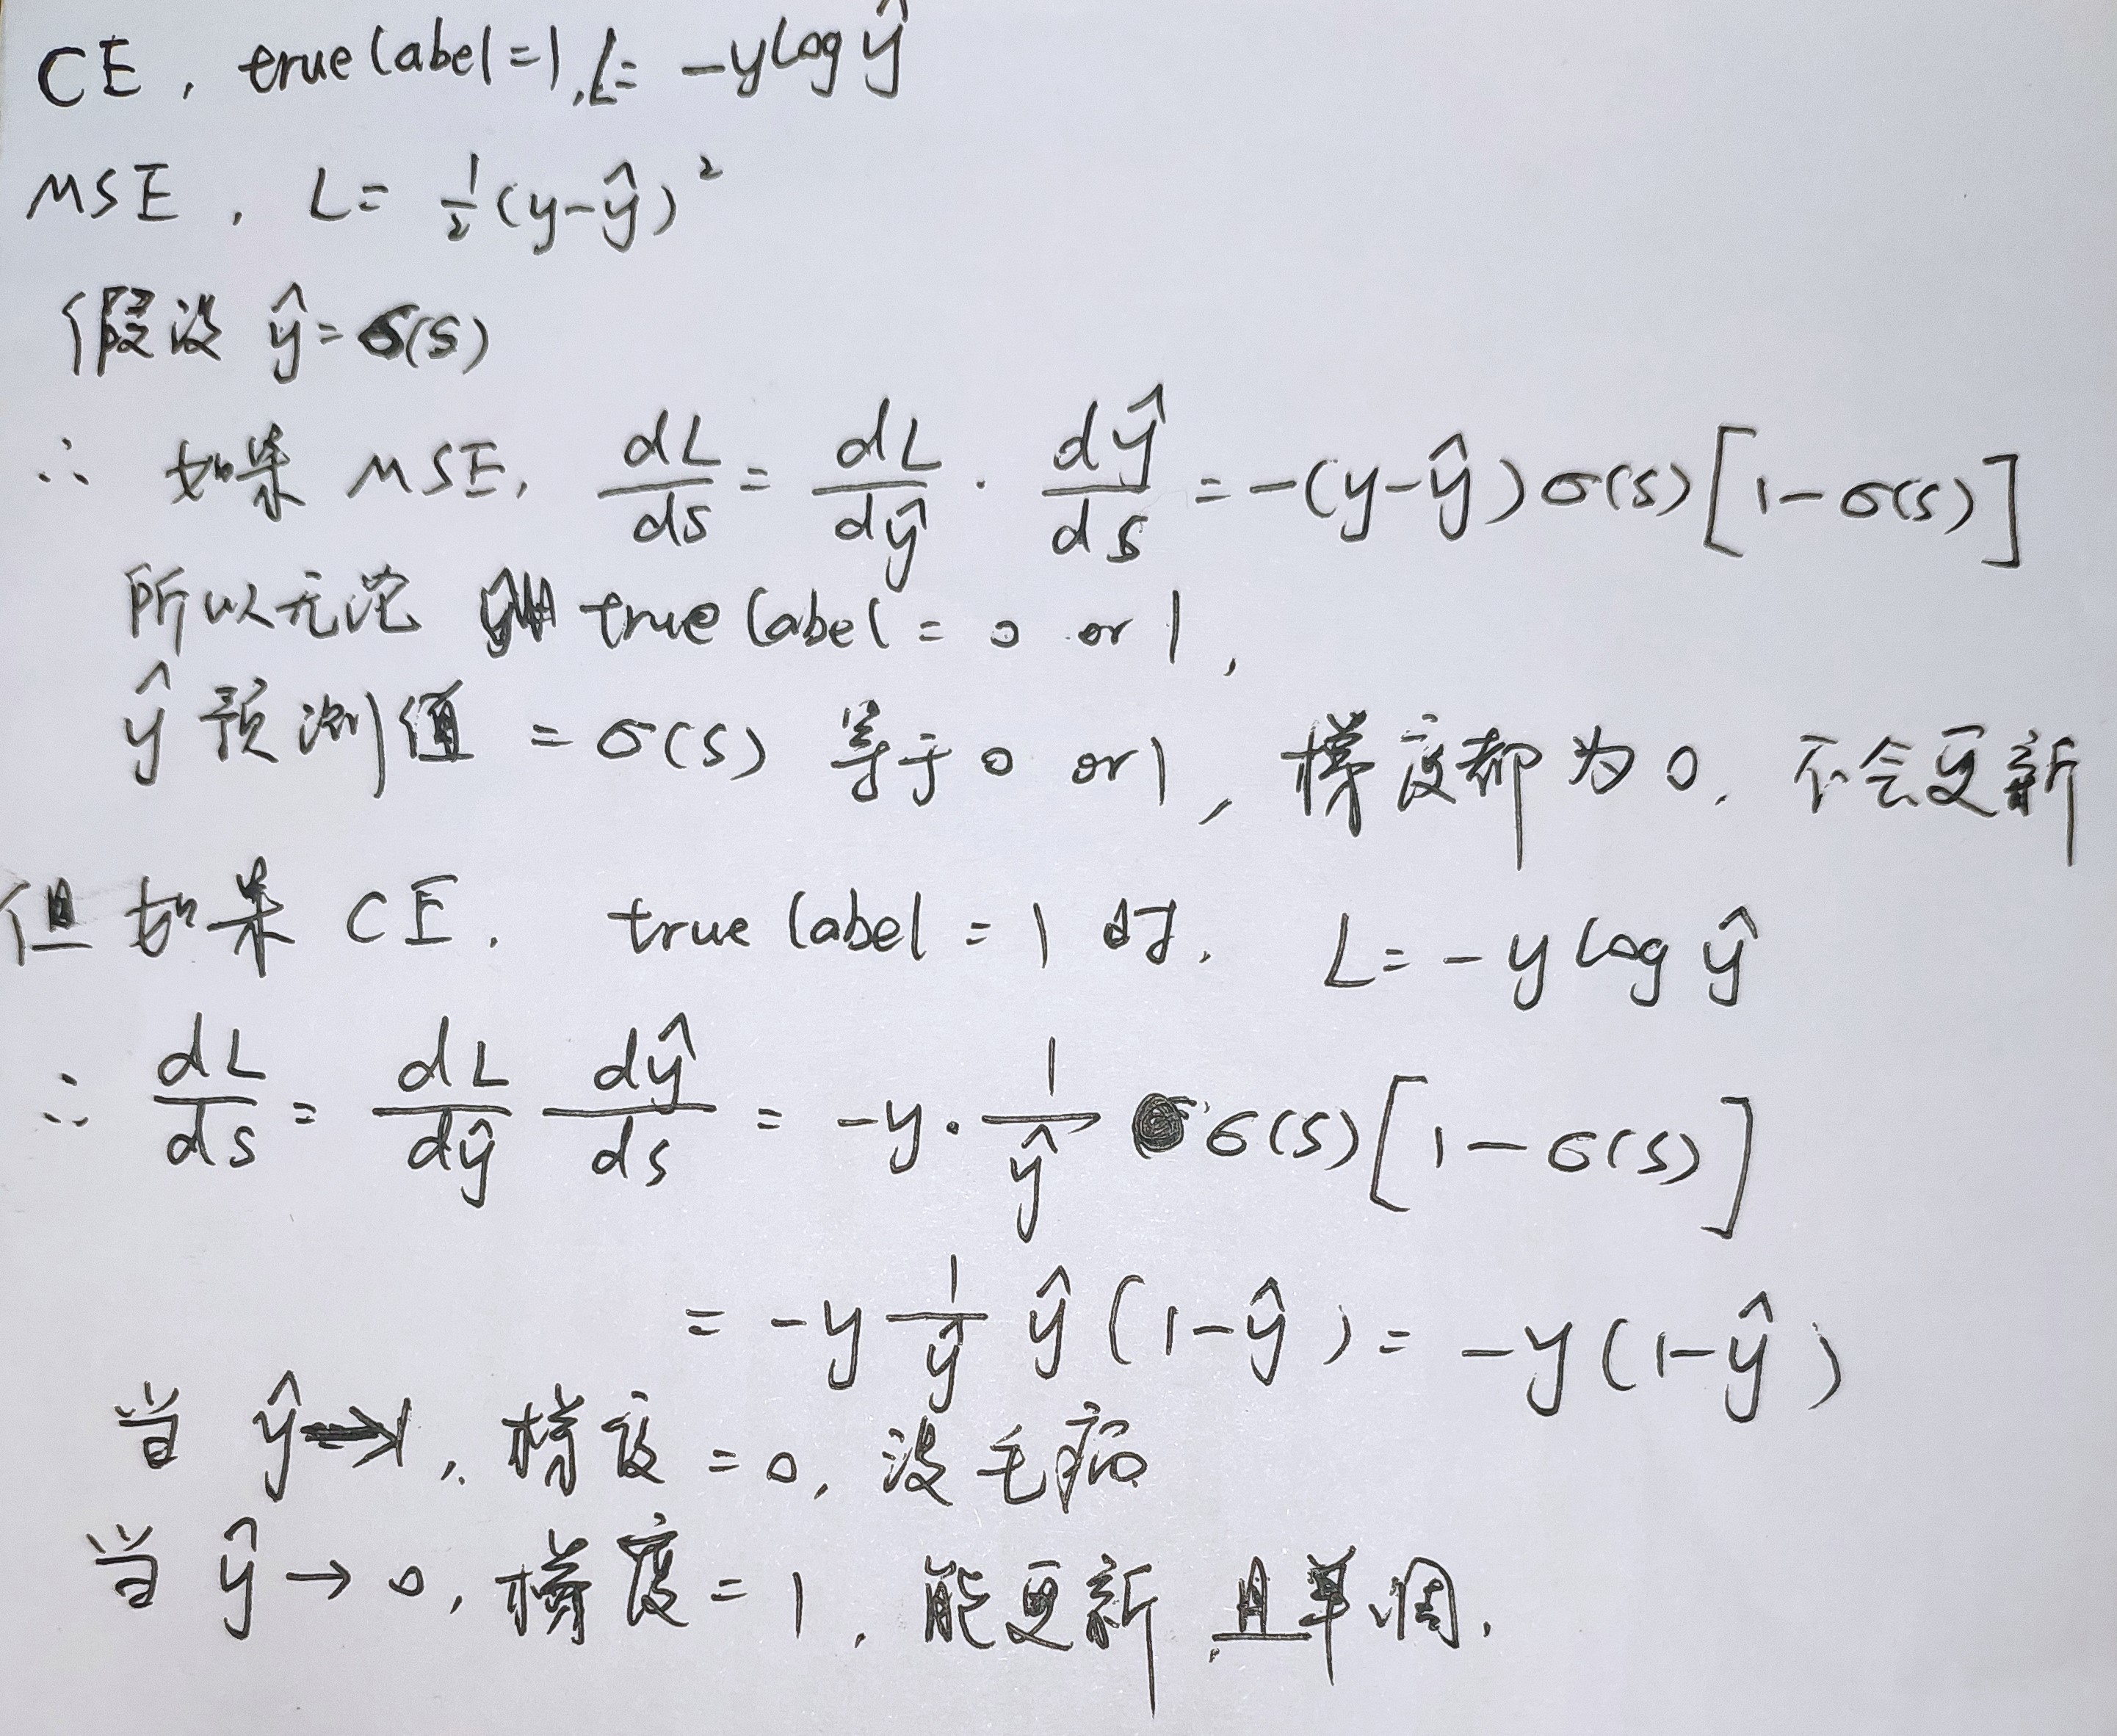 CE, true label=1, L= -ylogŷ
MSE, L= ½(y-ŷ)²
假设 ŷ=σ(s)
∴ 如果 MSE, dL/ds = dL/dŷ · dŷ/ds = -(y-ŷ)σ(s)[1-σ(s)]
所以无论 true label = 0 or 1,
ŷ 预测值 = σ(s) 等于 0 or 1, 梯度都为 0, 不会更新
但如果 CE, true label = 1 时, L= -y log ŷ
∴ dL/ds = dL/dŷ dŷ/ds = -y · 1/ŷ σ(s)[1-σ(s)]
= -y 1/ŷ ŷ(1-ŷ) = -y(1-ŷ)
当 ŷ→1, 梯度=0, 没毛病
当 ŷ→0, 梯度=1, 能更新, 且单调.